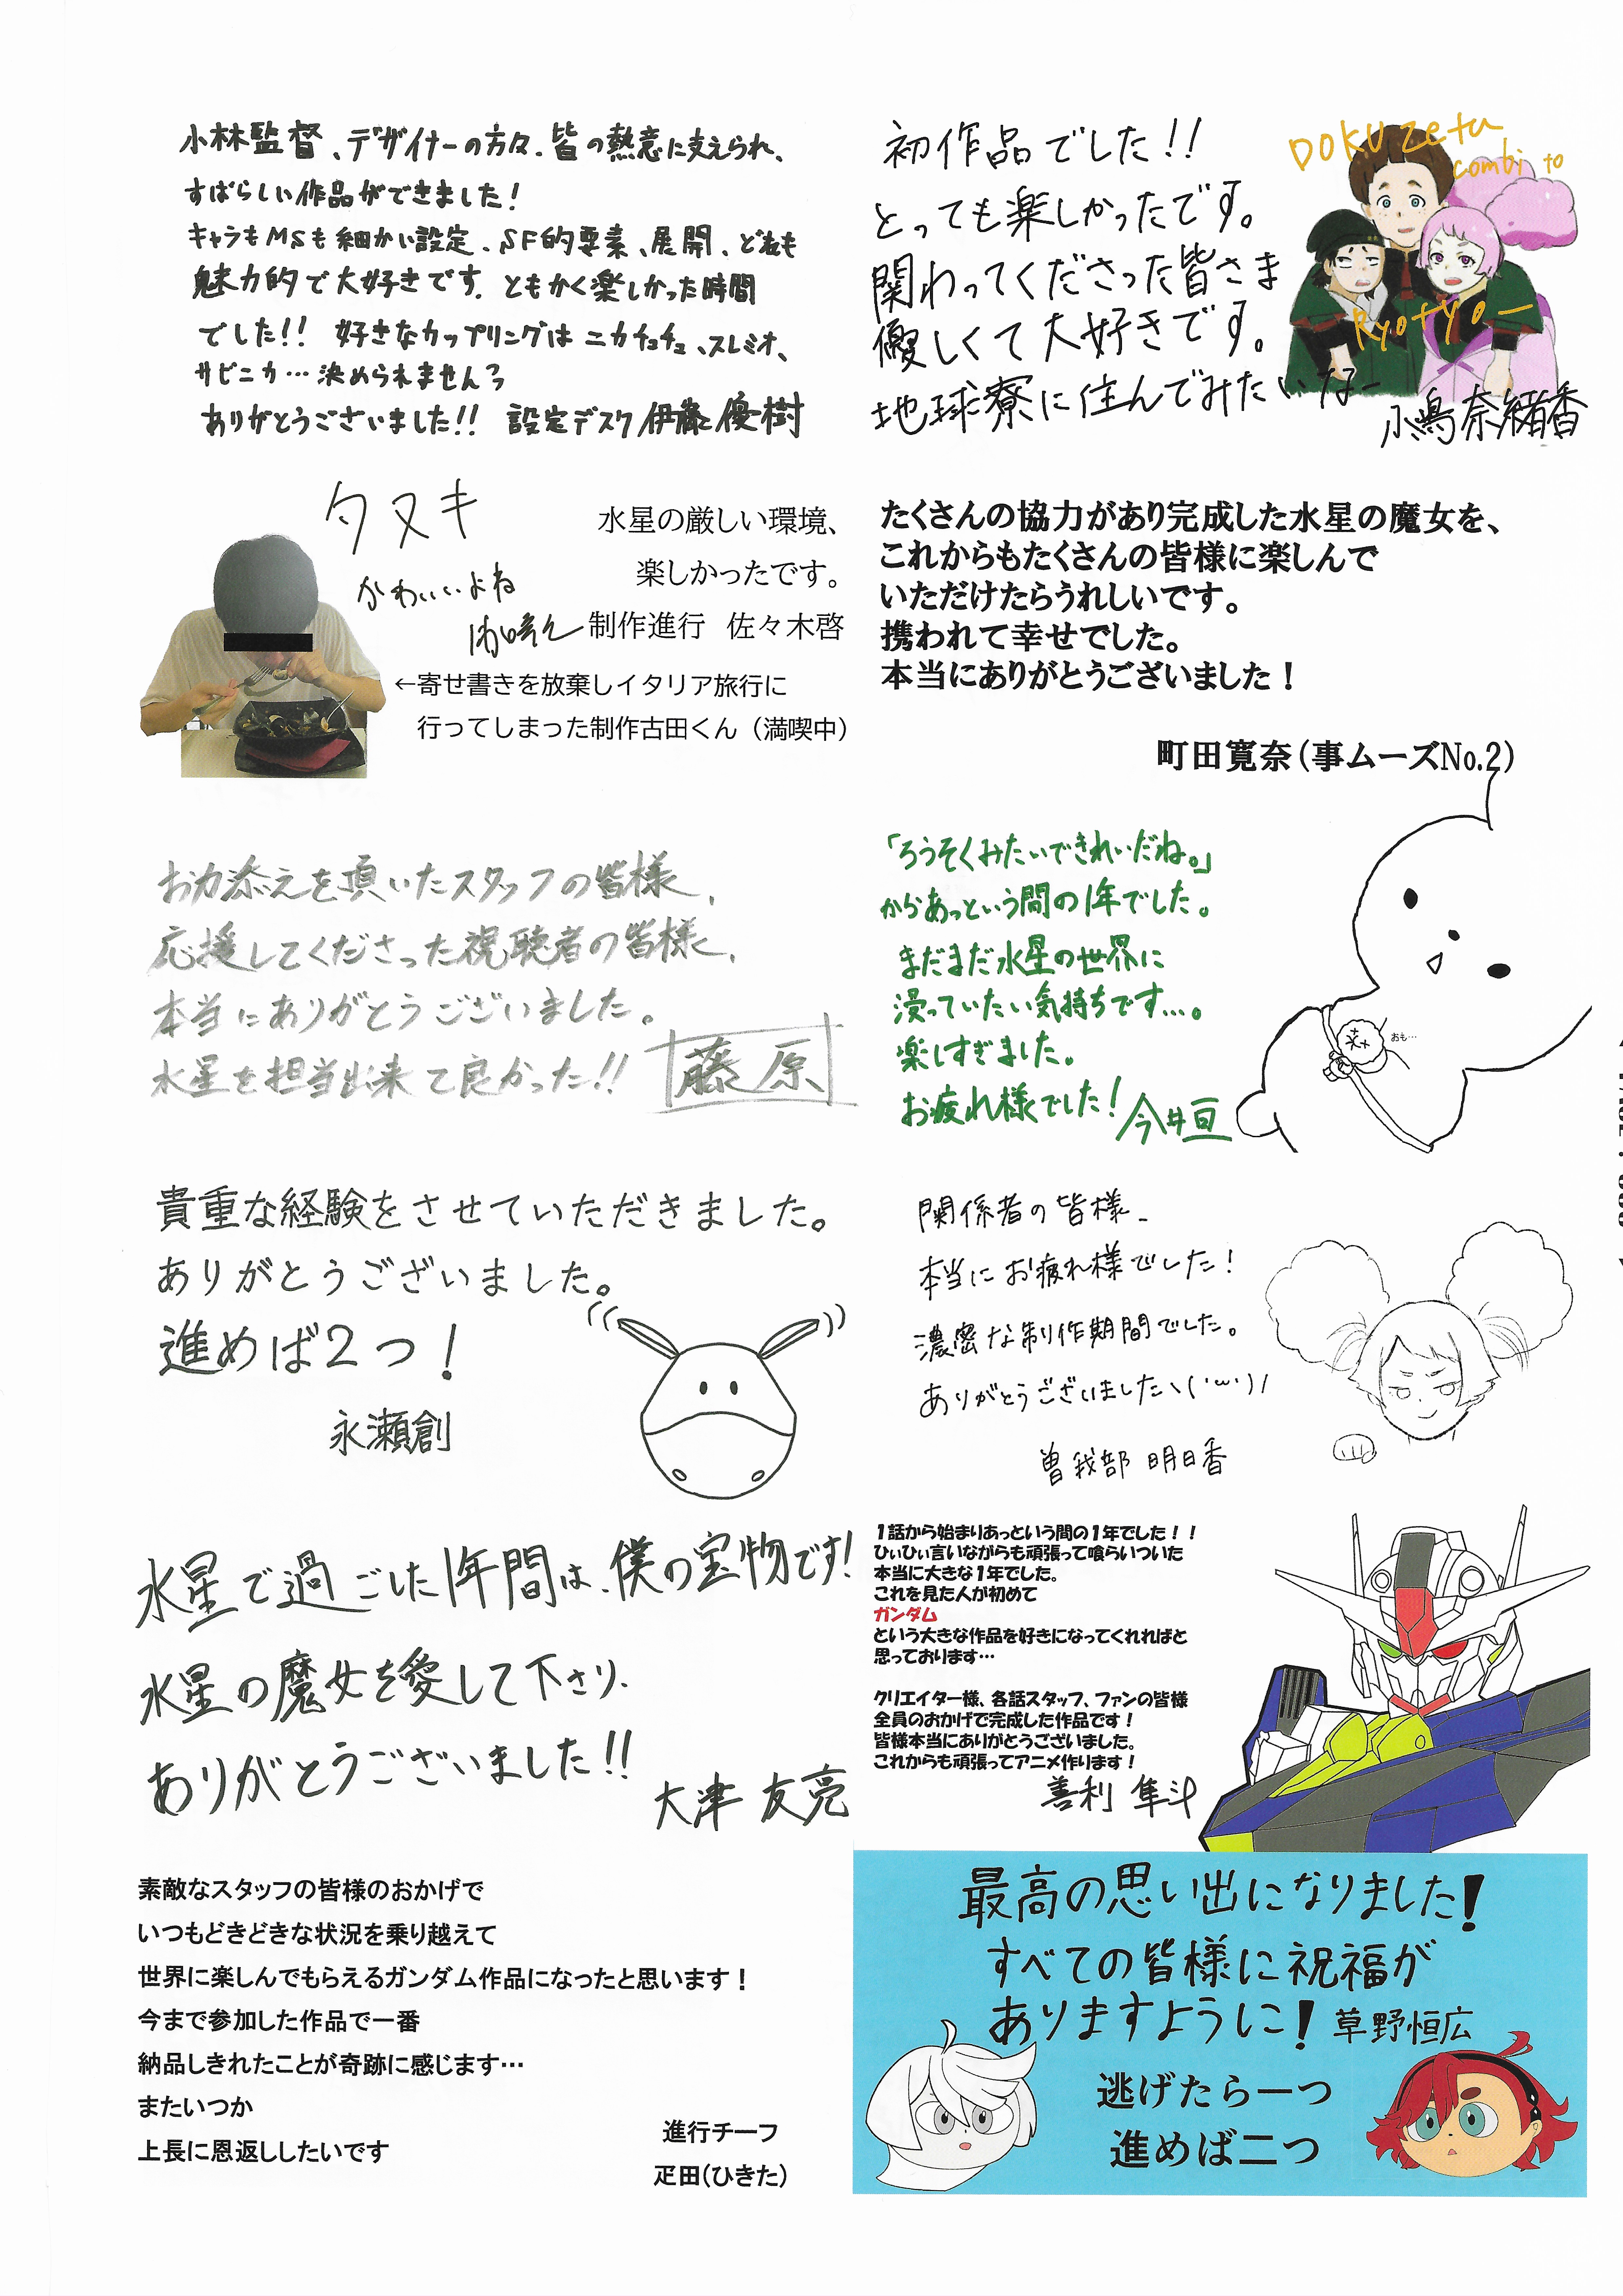 小林監督、デザイナーの方々、皆の熱意に支えられ、
すばらしい作品ができました!
キャラもMSも細かい設定、SF的要素、展開、どれも
魅力的で大好きです。ともかく楽しかった時間
でした!! 好きなカップリングはニカチュチュ、スレミオ、
サビニカ…決められませんっ
ありがとうございました!! 設定デスク 伊藤優樹
初作品でした!!
とっても楽しかったです。
関わってくださった皆さま
優しくて大好きです。
地球寮に住んでみたいなー
小嶋奈緒香
DOKUzeta
combi to
Ryotyoー
タヌキ
かわいいよね
水星の厳しい環境、
楽しかったです。
制作進行 佐々木啓
←寄せ書きを放棄しイタリア旅行に
行ってしまった制作古田くん(満喫中)
たくさんの協力があり完成した水星の魔女を、
これからもたくさんの皆様に楽しんで
いただけたらうれしいです。
携われて幸せでした。
本当にありがとうございました!
町田寛奈(事ムーズNo.2)
お力添えを頂いたスタッフの皆様、
応援してくださった視聴者の皆様、
本当にありがとうございました。
水星を担当出来て良かった!!
藤原
「ろうそくみたいできれいだね。」
からあっという間の1年でした。
まだまだ水星の世界に
浸っていたい気持ちです…。
楽しすぎました。
お疲れ様でした!
今井亘
おも…
貴重な経験をさせていただきました。
ありがとうございました。
進めば2つ!
永瀬創
関係者の皆様、
本当にお疲れ様でした!
濃密な制作期間でした。
ありがとうございました\(˙ω˙)/
曽我部 明日香
水星で過ごした1年間は、僕の宝物です!
水星の魔女を愛して下さり、
ありがとうございました!!
大津 友亮
1話から始まりあっという間の1年でした!!
ひぃひぃ言いながらも頑張って喰らいついた
本当に大きな1年でした。
これを見た人が初めて
ガンダム
という大きな作品を好きになってくれればと
思っております…
クリエイター様、各話スタッフ、ファンの皆様
全員のおかげで完成した作品です!
皆様本当にありがとうございました。
これからも頑張ってアニメ作ります!
善利 隼斗
素敵なスタッフの皆様のおかげで
いつもどきどきな状況を乗り越えて
世界に楽しんでもらえるガンダム作品になったと思います!
今まで参加した作品で一番
納品しきれたことが奇跡に感じます…
またいつか
上長に恩返ししたいです
進行チーフ
疋田(ひきた)
最高の思い出になりました!
すべての皆様に祝福が
ありますように!
草野恒広
逃げたら一つ
進めば二つ